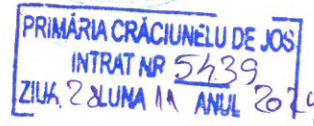 PRIMĂRIA CRĂCIUNELU DE JOS
INTRAT NR 5439
ZIUA 28 LUNA 11 ANUL 2024